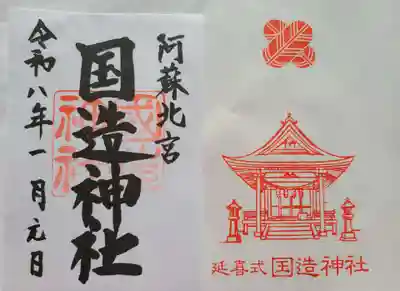 阿蘇北宮
国造神社
令和八年一月元日
延喜式 国造神社